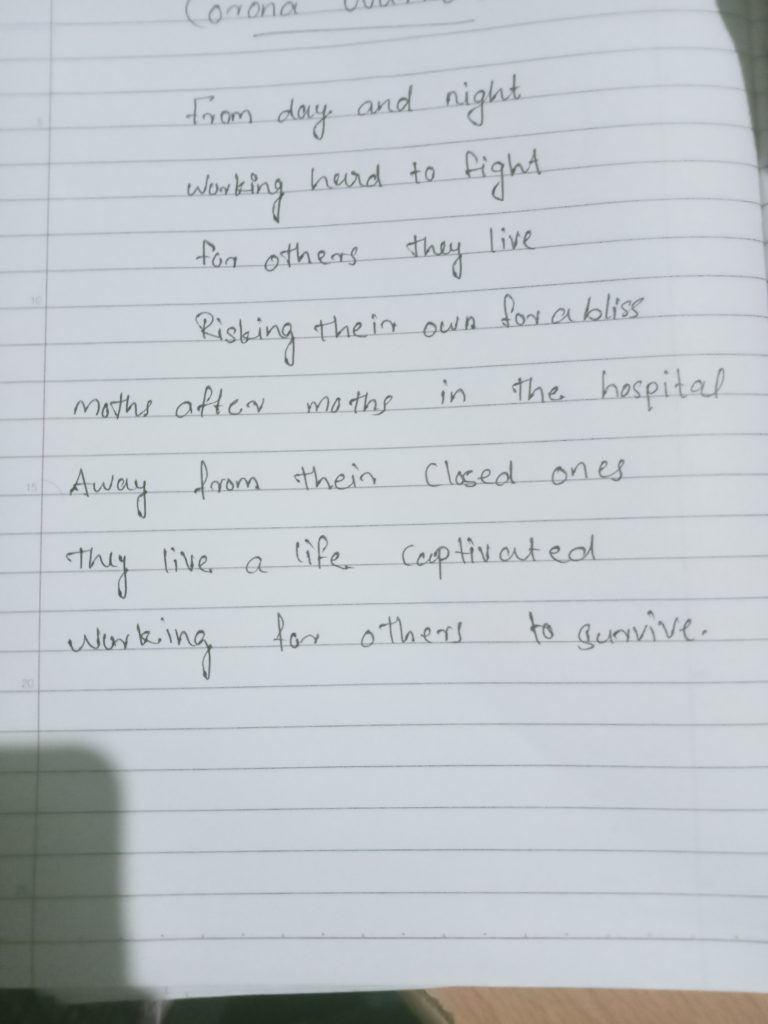 Corona
From day and night
Working hard to fight
for others they live
Risking their own for a bliss
moths after moths in the hospital
Away from their Closed ones
They live a life Captivated
Working for others to survive.